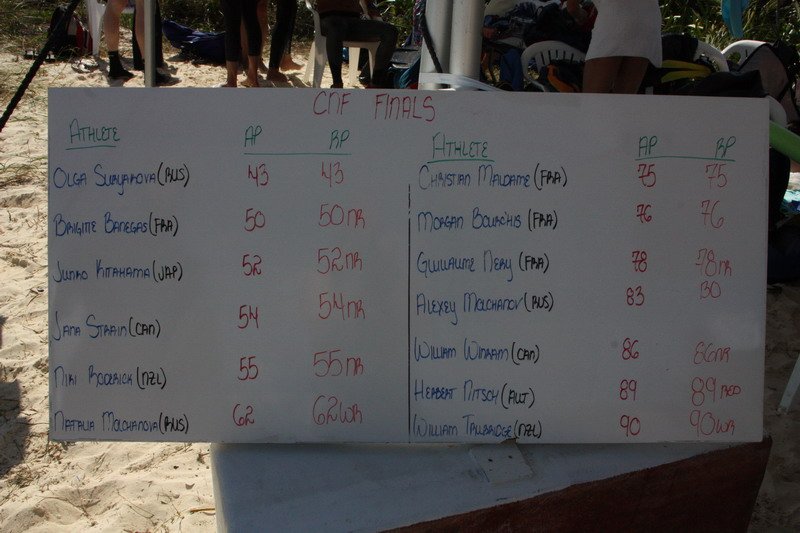 CNF FINALS
ATHLETE AP RP
OLGA SURYAKOVA (RUS) 43 43
BRIGITE BANEGAS (FRA) 50 50NR
JUNKO KITAHAMA (JAP) 52 52NR
JANA STRAIN (CAN) 54 54NR
NIKI RODERICK (NZL) 55 55NR
NATALIA MOLCHANOVA (RUS) 62 62WR
ATHLETE AP RP
CHRISTIAN MALDAME (FRA) 75 75
MORGAN BOURCHIS (FRA) 76 76
GUILLAUME NERY (FRA) 78 78NR
ALEXEY MOLCHANOV (RUS) 83 30
WILLIAM WINRAM (CAN) 86 86NR
HERBERT NITSCH (AUT) 89 89 RED
WILLIAM TRUBRIDGE (NZL) 90 90WR